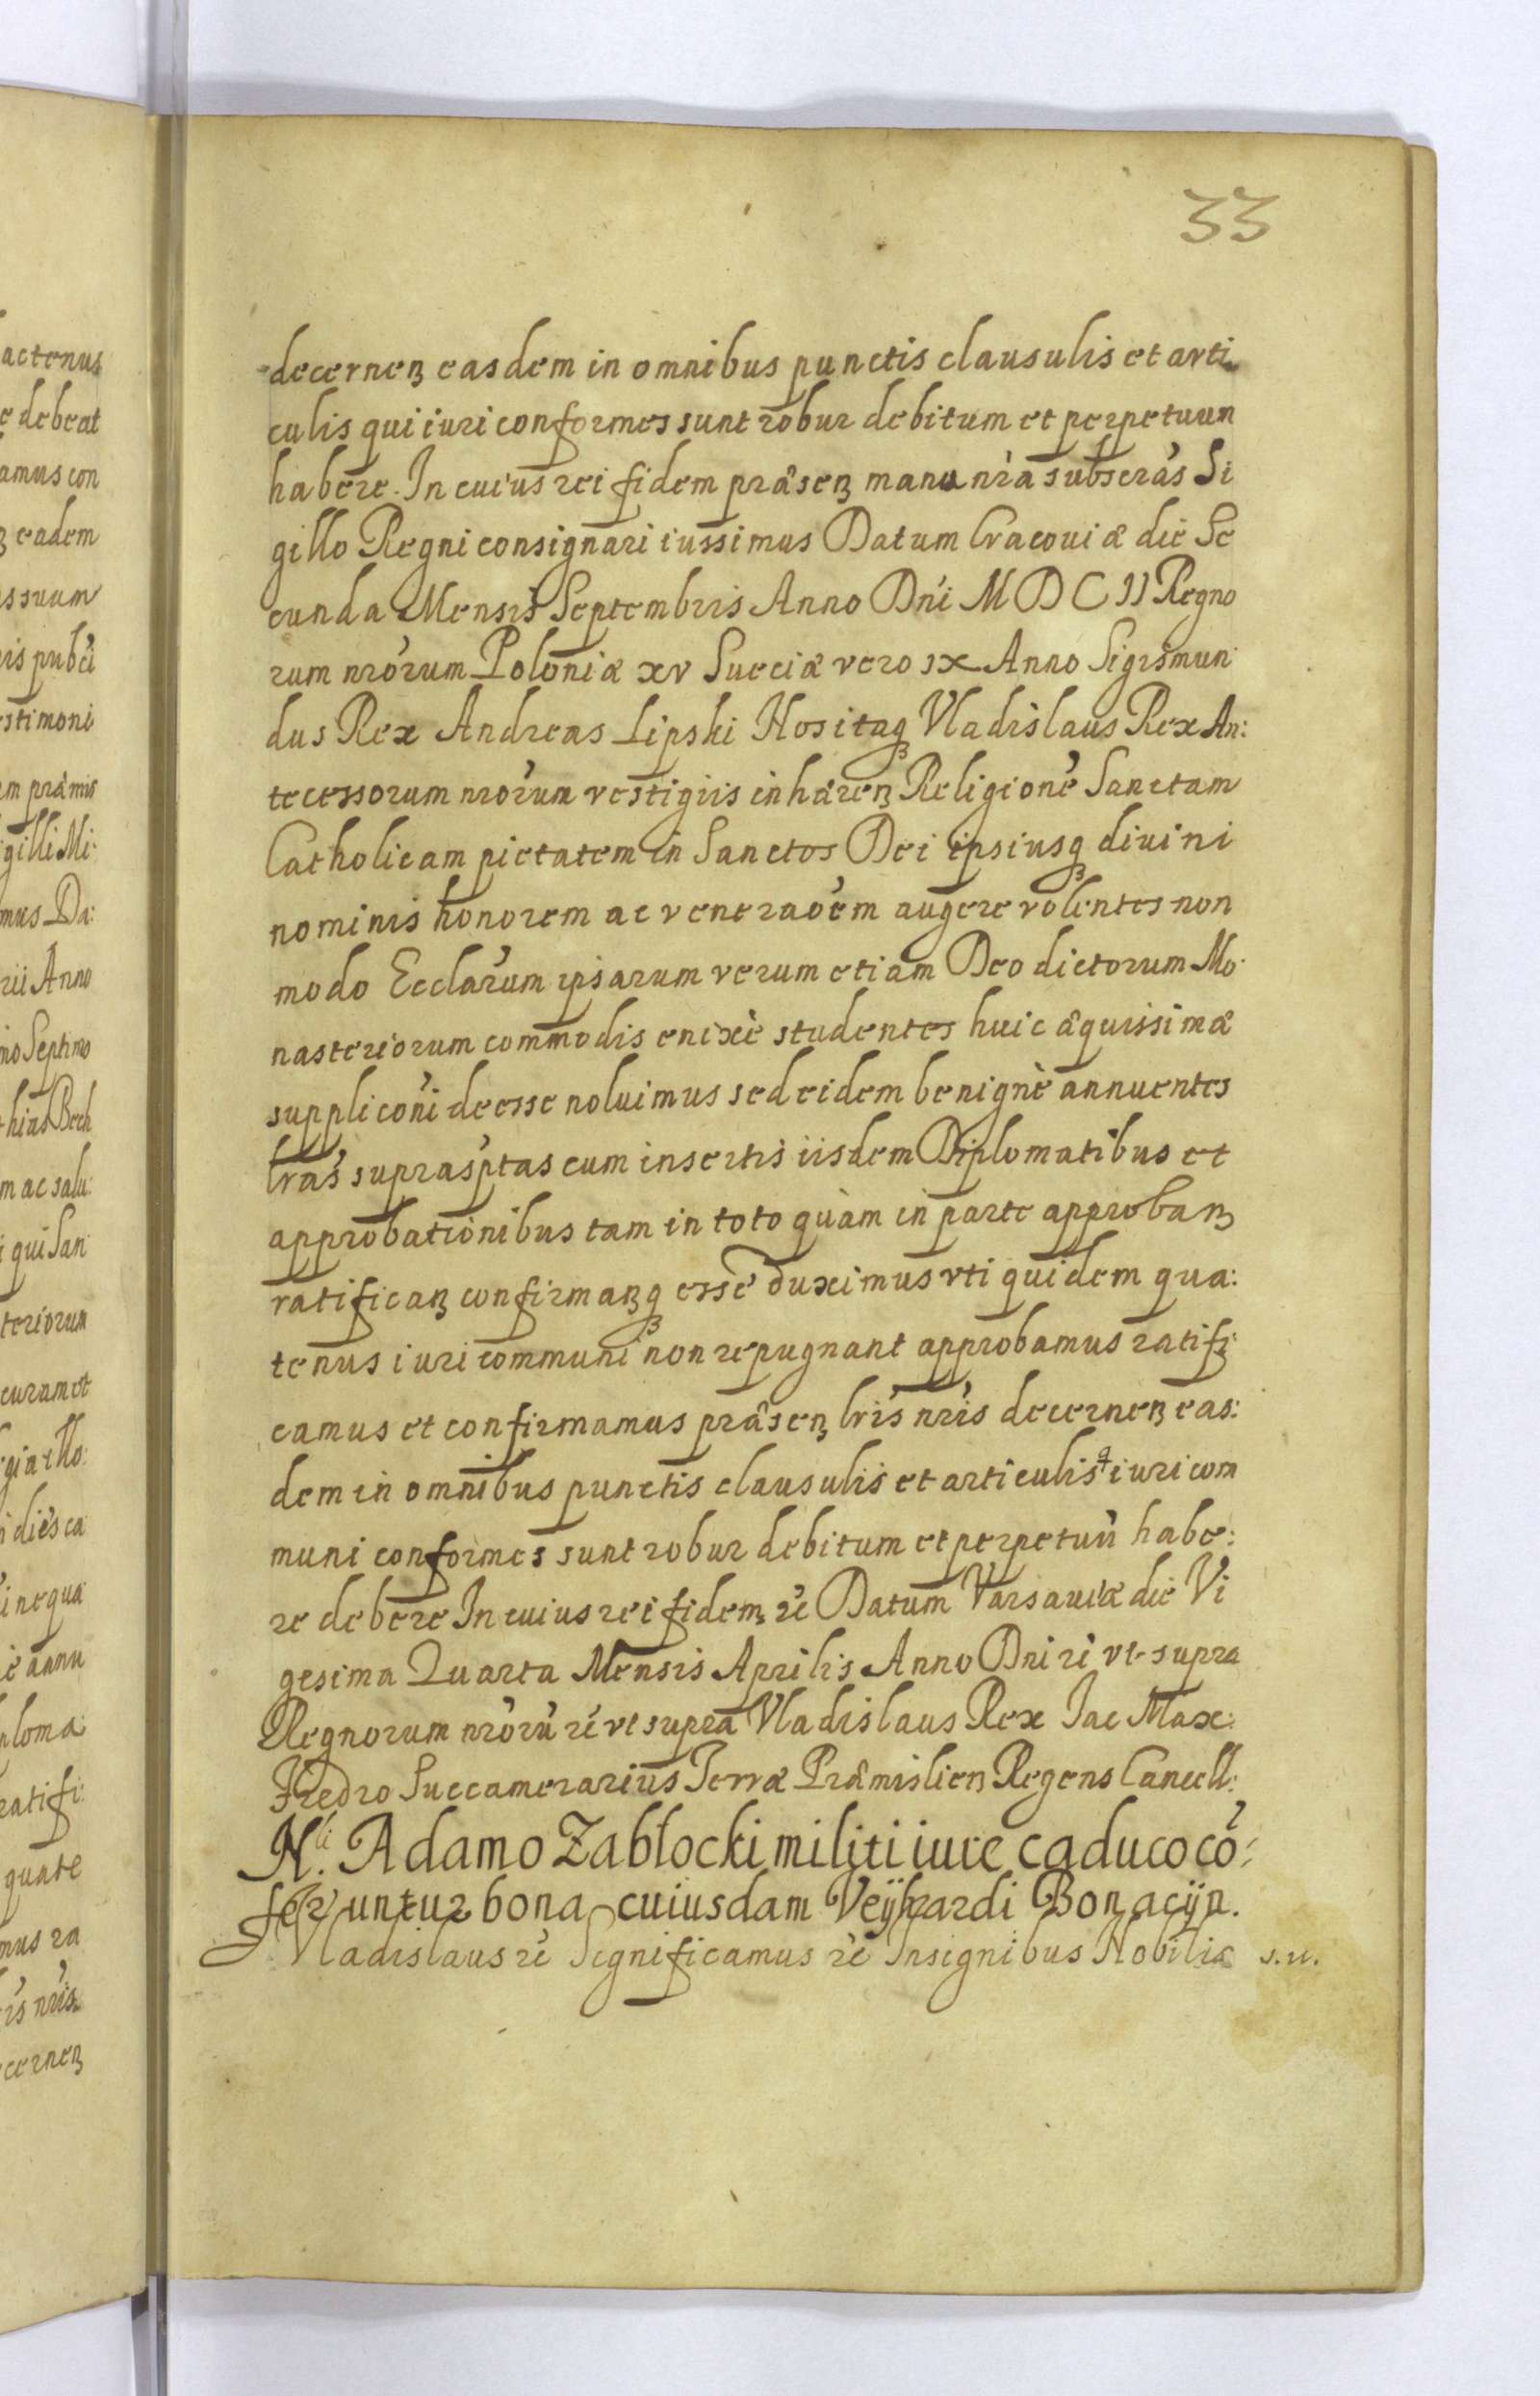 33
decerneꝫ easdem in omnibus punctis clausulis et arti
culis qui iuri conformes sunt robur debitum et perpetuum
habere. In cuius rei fidem præseꝫ manu nrā subscrās Si
gillo Regni consignari iussimus Datum Cracouiæ die Se
cunda Mensis Septembris Anno Dni MDCII Regno
rum nrorum Poloniæ xv Sueciæ vero ix Anno Sigismun
dus Rex Andreas Lipski Nos itaqꝫ Vladislaus Rex An:
tecessorum nrorum vestigiis inhæreꝫ Religionē Sanctam
Catholicam pietatem in Sanctos Dei ipsiusqꝫ diuini
nominis honorem ac veneraōem augere volentes non
modo Ecclarum ipsarum verum etiam Deo dictorum Mo
nasteriorum commodis enixè studentes huic æquissimæ
suppliconi deesse noluimus sed eidem benignè annuentes
lras suprasptas cum insertis iisdem Diplomatibus et
approbationibus tam in toto quàm in parte approbaꝫ
ratificaꝫ confirmaꝫqꝫ esse duximus vti quidem qua:
tenus iuri communi non repugnant approbamus ratifi
camus et confirmamus præseꝫ lris nris decerneꝫ eas:
dem in omnibus punctis clausulis et articulis q iuri com
muni conformes sunt robur debitum et perpetuū habe:
re debere In cuius rei fidem ꝛc Datum Varsauiæ die Vi
gesima Quarta Mensis Aprilis Anno Dni ꝛc vt supra
Regnorum nrorū ꝛc vt supra Vladislaus Rex Iac Max:
Fredro Succamerarius Terræ Præmislieꝫ Regens Cancell:
N.li Adamo Zabłocki militi iure caduco cō:
feruntur bona cuiusdam Veÿhardi Bonacÿn.
Vladislaus ꝛc Significamus ꝛc Insignibus Nobiliæ s.n.
actenus
e debeat
amus con
ꝫ eadem
s suum
is pubci
estimoni
em præmis
gilli Mi:
mus Da:
rii Anno
mo Septimo
thias Bech
m ac salu:
i qui San
teriorum
curam et
gia illo:
i dies ca
i nequa
è annu
ploma
ratifi:
quate
mus ra
ris nris
cerneꝫ